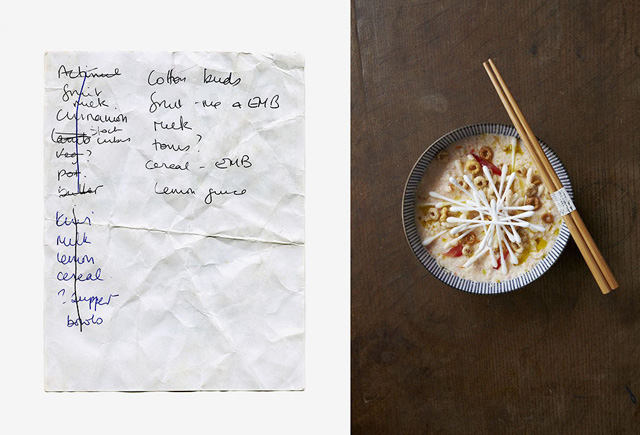 Actimel
fruit
milk
Cinnamon
stock
cubes
veg?
pot.
butter
Kiwi
milk
lemon
cereal
? supper
bowls
Cotton buds
fruit - me & EMB
milk
toms?
cereal - EMB
lemon juice